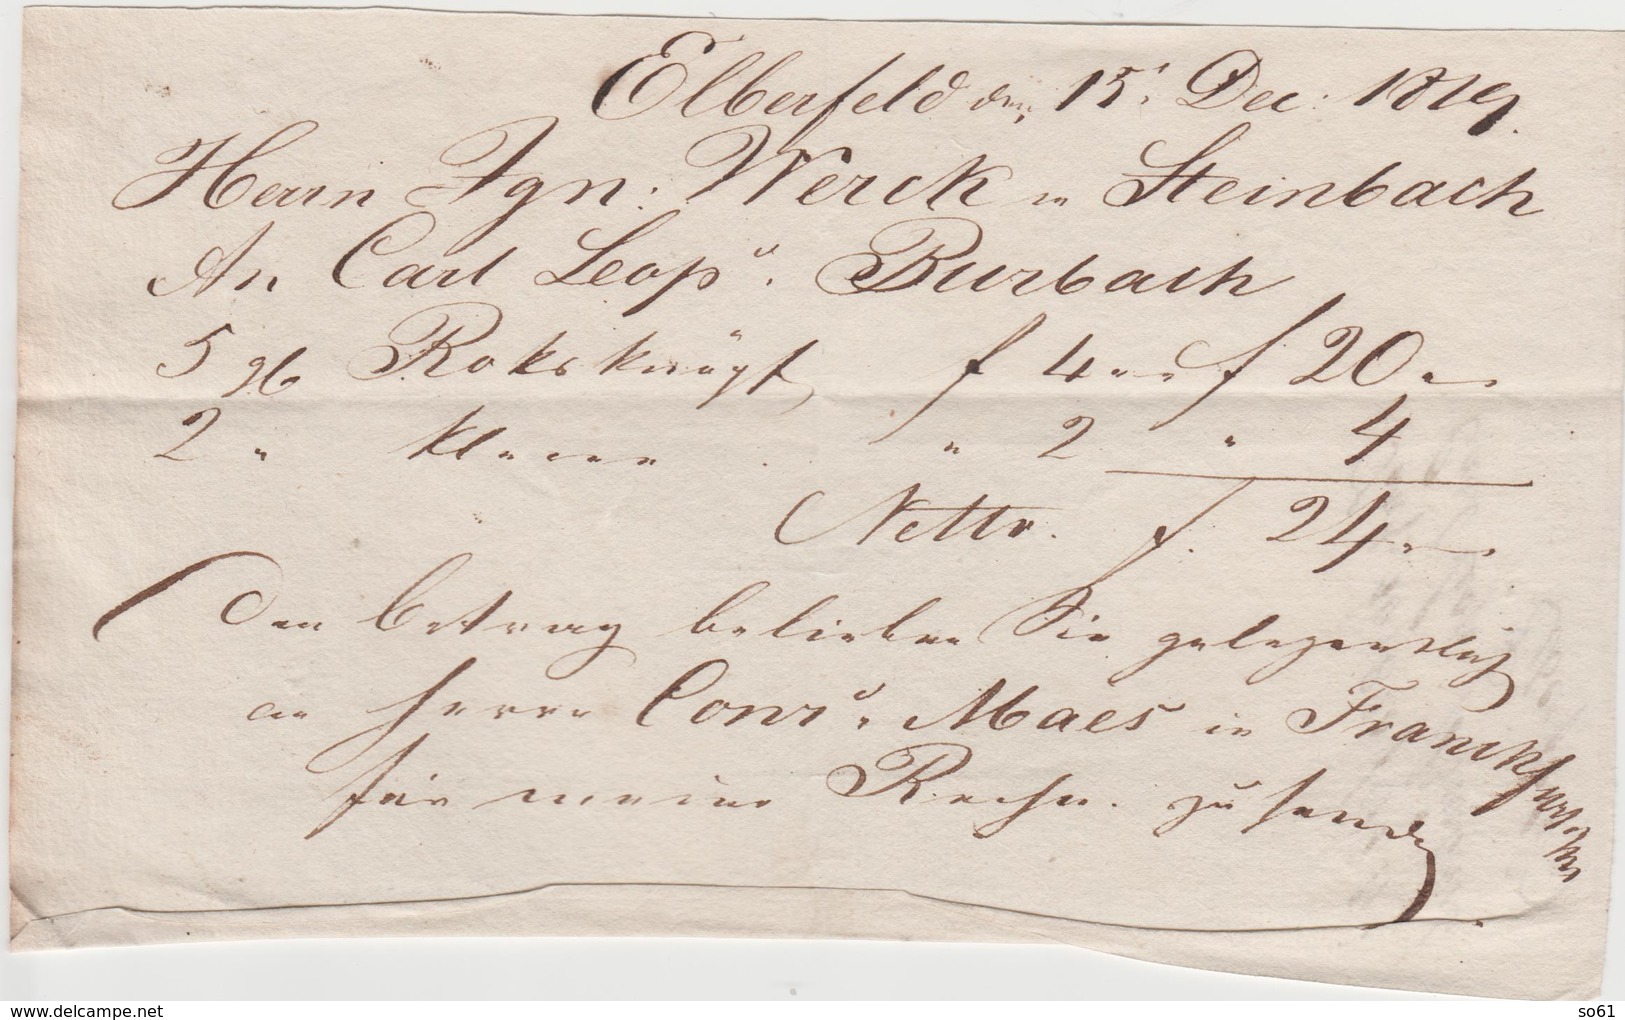 Elberfeld den 15' Dec: 1819.
Herrn Ign: Werck in Steinbach
An Carl Leopd. Burbach
5 gß Roksknöpf f 4 „ „ f 20 „ –
2 „ kleine „ 2 „ 4
Netto. f. 24 „ –
Den Betrag belieben Sie gelegentlich
an Herrn Conrd. Maes in Franckfurt a/m
für meine Rechn. zu senden.
delcampe.net
so61